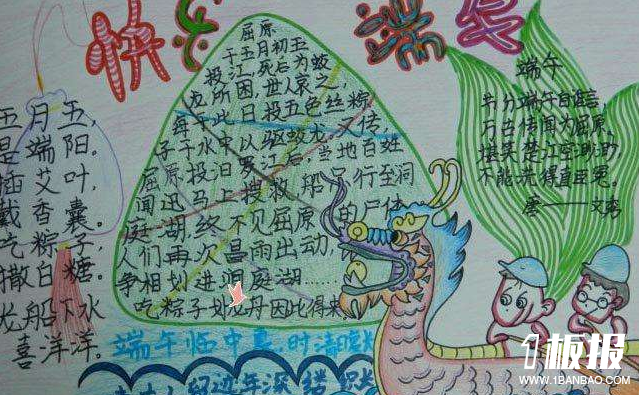 快乐端午
五月五,
是端阳。
插艾叶,
戴香囊。
吃粽子,
撒白糖。
龙船下水
喜洋洋。
屈原
于五月初五
投江,死后为蛟
龙所困,世人哀之,
每于此日投五色丝粽
子于水中,以驱蛟龙,又传
屈原投汨罗江后,当地百姓
闻迅马上搜救,
行至洞
庭湖,终不见屈原的尸体
人们再次冒雨出动,
争相划进洞庭湖……
吃粽子划龙舟因此得来
端午临中夏,时清日
年深
端午
节分端午自谁言,
万古传闻为屈原。
不能洗得直臣冤。
唐——文秀
1板报
WWW.1BANBAO.COM